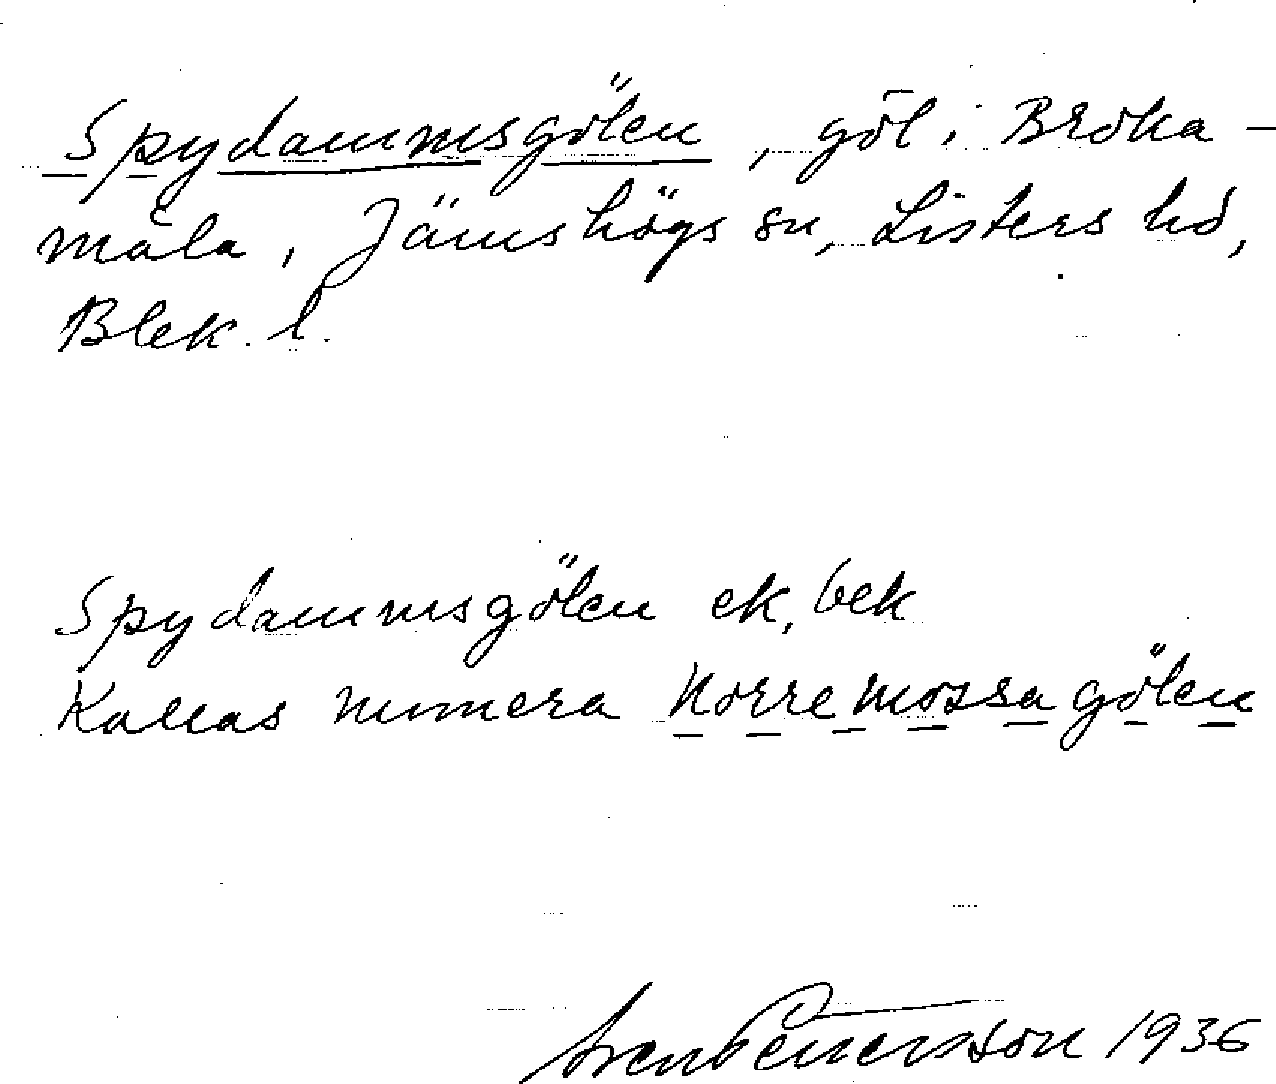 Spydammsgölen, göl i Broka-
måla, Jämshögs sn, Listers hd,
Blek. l.
Spydammsgölen ek, bek
Kallas numera Norremossagölen
Sven Pettersson 1936